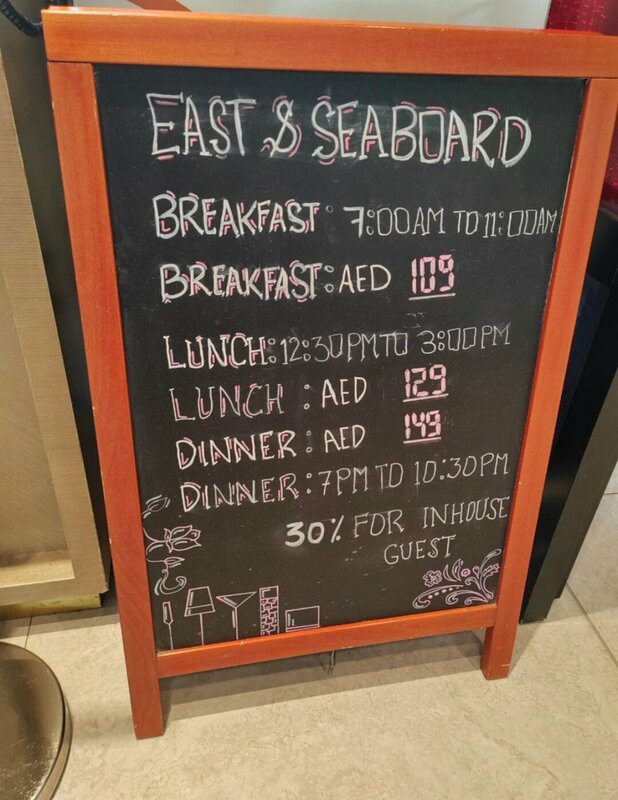 EAST & SEABOARD
BREAKFAST: 7:00AM TO 11:00AM
BREAKFAST: AED 109
LUNCH: 12:30PM TO 3:00PM
LUNCH : AED 129
DINNER: AED 149
DINNER: 7PM TO 10:30PM
30% FOR INHOUSE
GUEST